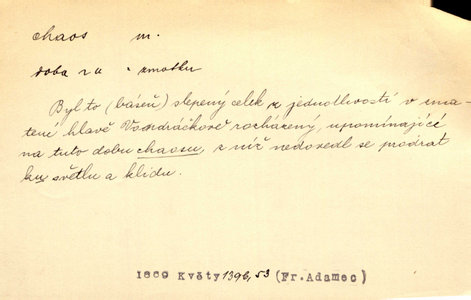 chaos m.
doba zmatku
Byl to (báseň) slepený celek z jednotlivostí v zma-
tené hlavě Vondráčkově rozházený, upomínající
na tuto dobu chaosu, z níž nedovedl se prodrat
ku světlu a klidu.
1869 Květy 1396,53 (Fr.Adamec)